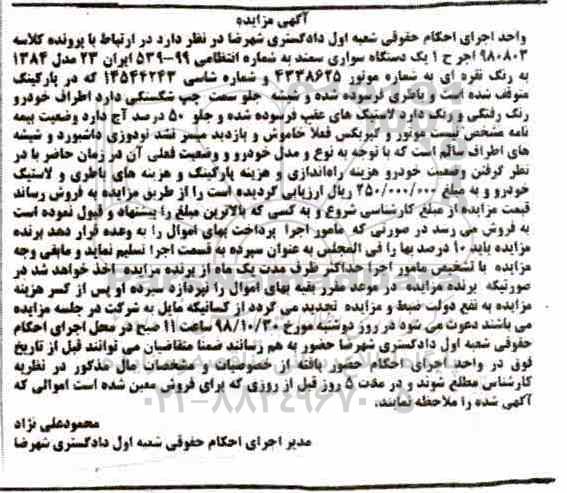 آگهی مزایده
واحد اجرای احکام حقوقی شعبه اول دادگستری شهرضا در نظر دارد در ارتباط با پرونده کلاسه
۹۸۰۸۰۳ اجر ح ۱ یک دستگاه سواری سمند به شماره انتظامی ۹۹-۵۳۹ ایران ۲۳ مدل ۱۳۸۴
به رنگ نقره ای به شماره موتور ۴۳۳۸۶۲۵ و شماره شاسی ۱۴۵۴۴۲۴۳ که در پارکینگ
متوقف شده است و باطری فرسوده شده و شیشه جلو سمت چپ شکستگی دارد اطراف خودرو
رنگ رفتگی و رنگ دارد لاستیک های عقب فرسوده شده و جلو ۵۰ درصد آج دارد وضعیت بیمه
نامه مشخص نیست موتور و گیربکس فعلا خاموش و بازدید میسر نشد تودوزی داشبورد و شیشه
های اطراف سالم است که با توجه به نوع و مدل خودرو و وضعیت فعلی آن در زمان حاضر با در
نظر گرفتن وضعیت خودرو هزینه راه‌اندازی و هزینه پارکینگ و هزینه های باطری و لاستیک
خودرو و به مبلغ ۲۵۰/۰۰۰/۰۰۰ ریال ارزیابی گردیده است را از طریق مزایده به فروش رساند
قیمت مزایده از مبلغ کارشناسی شروع و به کسی که بالاترین مبلغ را پیشنهاد و قبول نموده است
به فروش می رسد در صورتی که مامور اجرا پرداخت بهای اموال را به وعده قرار دهد برنده
مزایده باید ۱۰ درصد بها را فی المجلس به عنوان سپرده به قسمت اجرا تسلیم نماید و مابقی وجه
مزایده با تشخیص مامور اجرا حداکثر ظرف مدت یک ماه از برنده مزایده اخذ خواهد شد در
صورتیکه برنده مزایده در موعد مقرر بقیه بهای اموال را نپردازد سپرده او پس از کسر هزینه
مزایده به نفع دولت ضبط و مزایده تجدید می گردد از کسانیکه مایل به شرکت در جلسه مزایده
می باشند دعوت می شود در روز دوشنبه مورخ ۹۸/۱۰/۳۰ ساعت ۱۱ صبح در محل اجرای احکام
حقوقی شعبه اول دادگستری شهرضا حضور به هم رسانند ضمنا متقاضیان می توانند قبل از تاریخ
فوق در واحد اجرای احکام حضور یافته از خصوصیات و مشخصات مال مذکور در نظریه
کارشناس مطلع شوند و در مدت ۵ روز قبل از روزی که برای فروش معین شده است اموالی که
آگهی شده را ملاحظه نمایند.
محمودعلی نژاد
مدیر اجرای احکام حقوقی شعبه اول دادگستری شهرضا